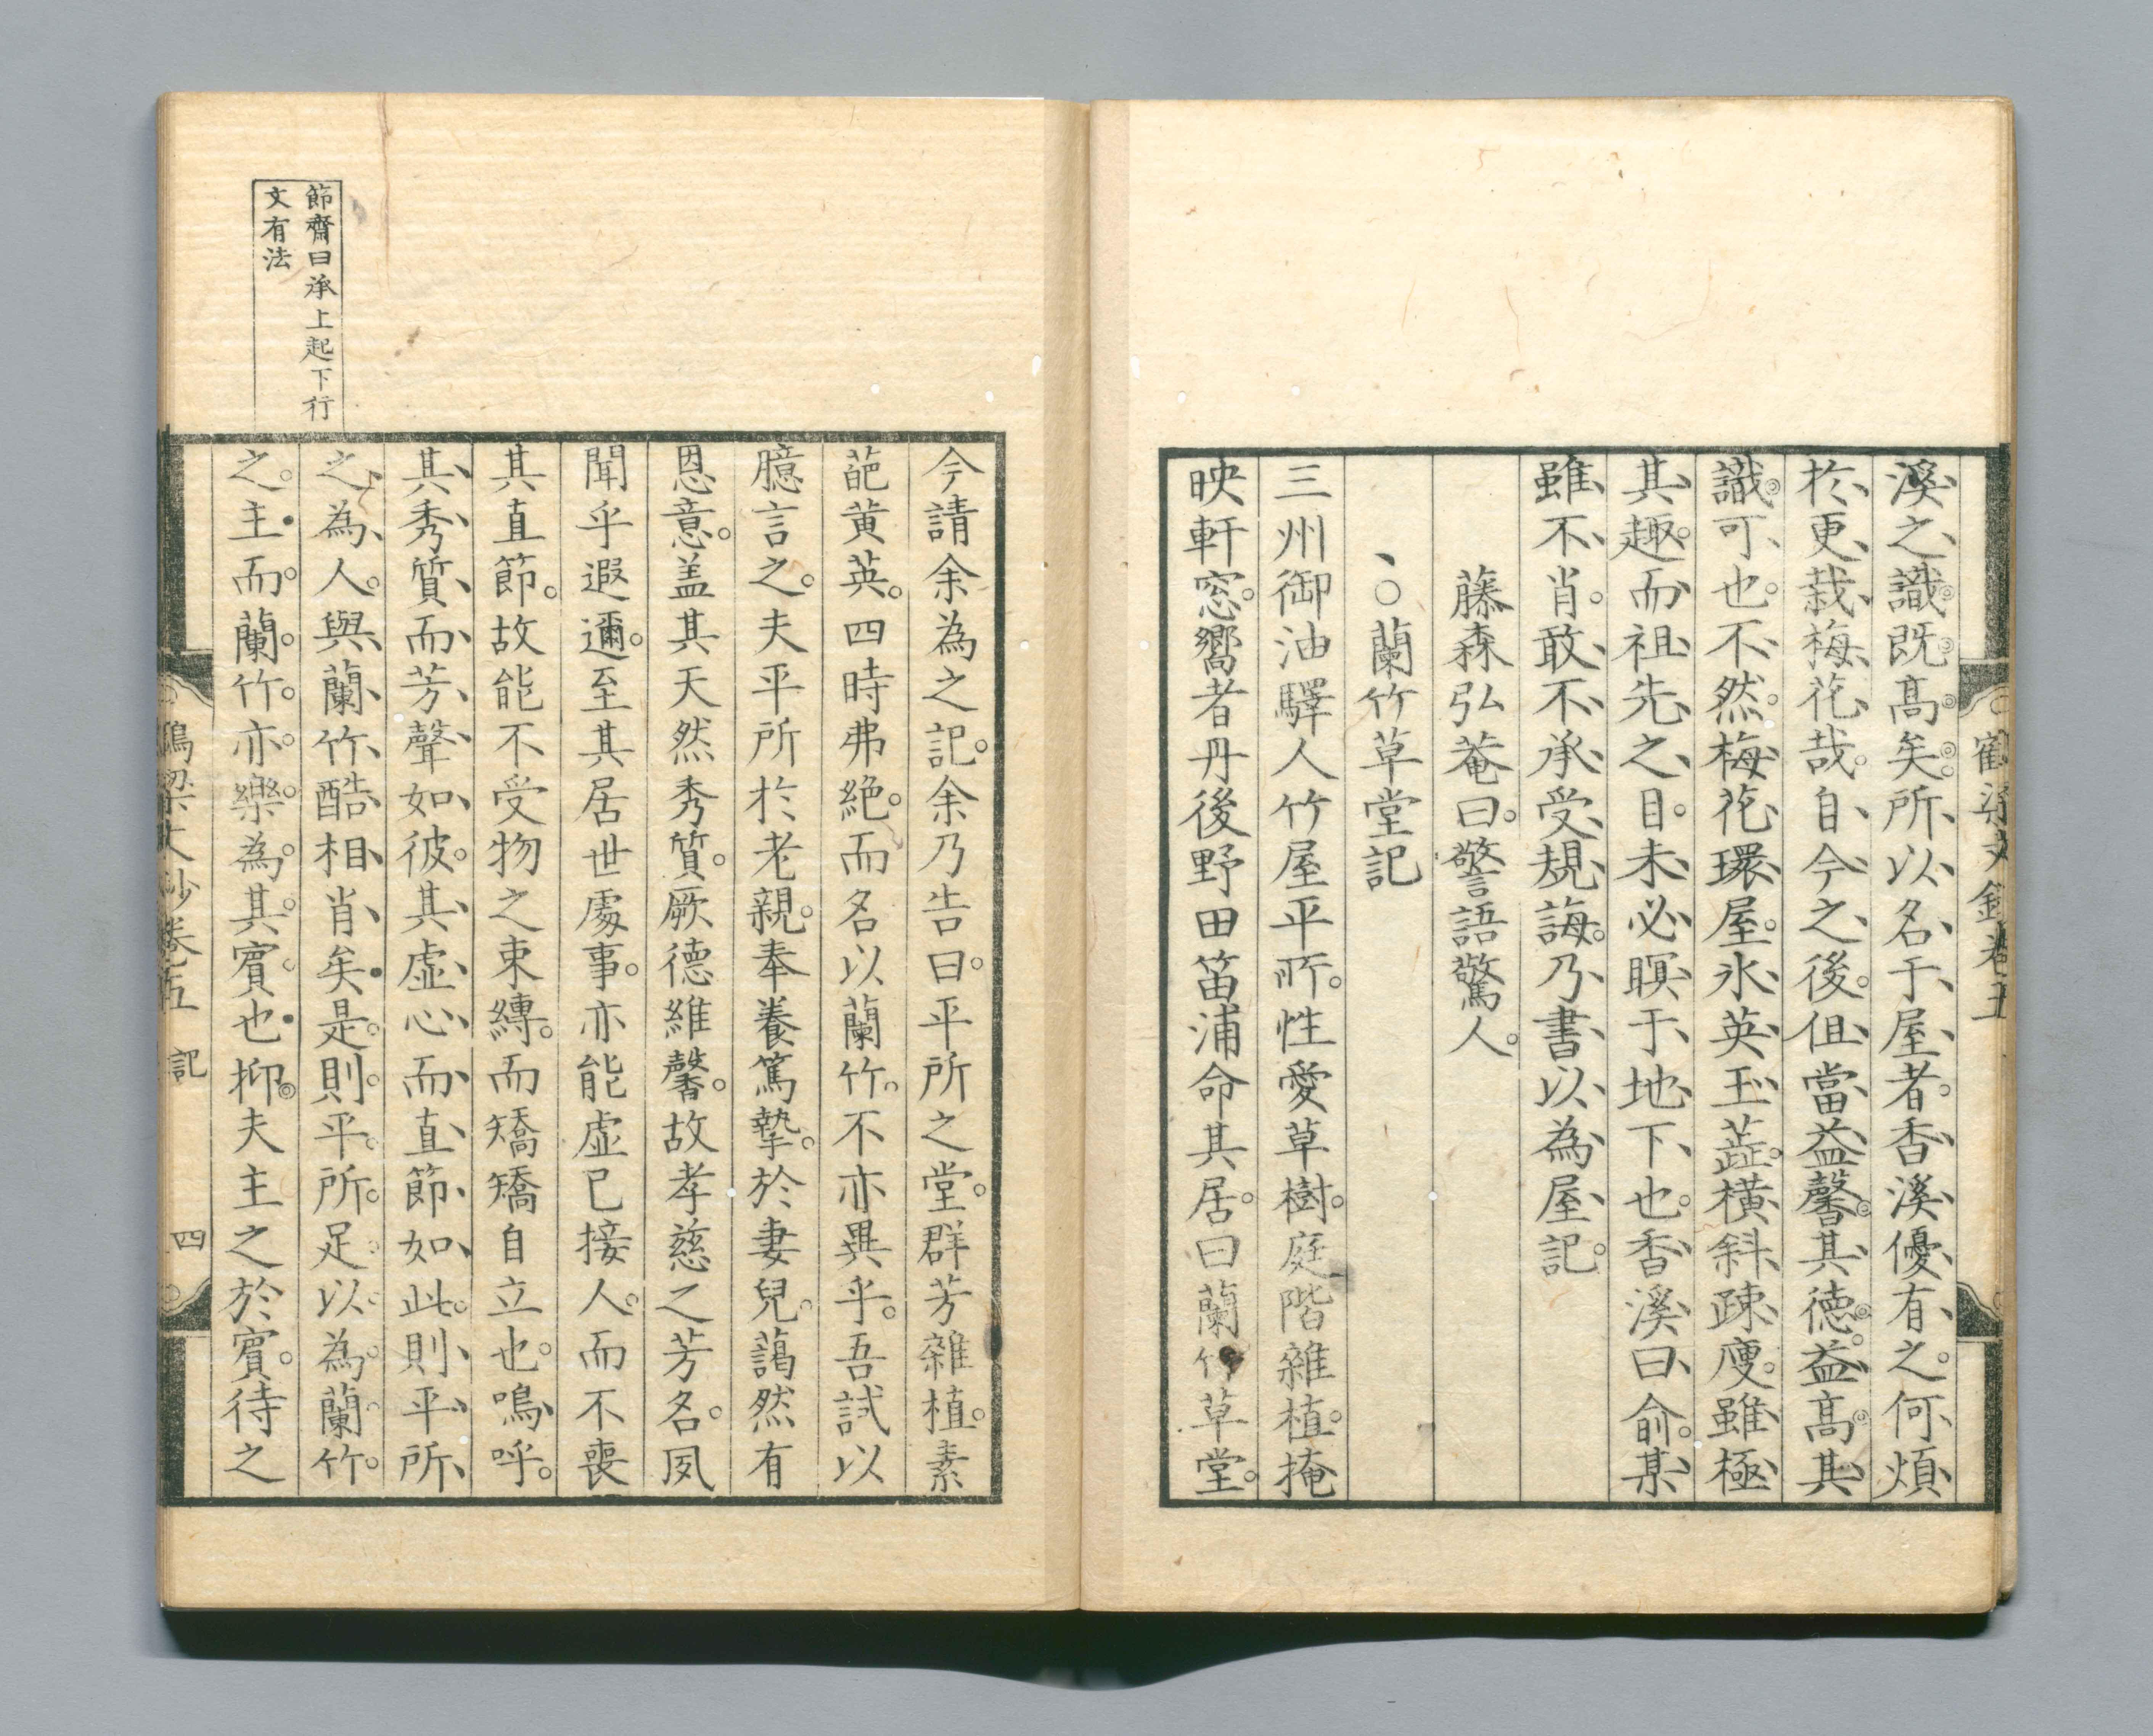 溪之識既高矣所以名于屋者香溪優有之何煩
於更栽梅花哉自今之後但當益馨其德益高其
識可也不然梅花環屋氷英玉蕋橫斜疎瘦雖極
其趣而祖先之目未必瞑于地下也香溪曰俞某
雖不肖敢不承受規誨乃書以為屋記
藤森弘菴曰警語驚人
○蘭竹草堂記
三州御油驛人竹屋平所性愛草樹庭階雜植掩
映軒窓嚮者丹後野田笛浦命其居曰蘭竹草堂
節齋曰承上起下行
文有法
今請余為之記余乃告曰平所之堂群芳雜植素
葩黄英四時弗絶而名以蘭竹不亦異乎吾試以
臆言之夫平所於老親奉養篤摯於妻兒藹然有
恩意盖其天然秀質厥德維馨故孝慈之芳名夙
聞乎遐邇至其居世處事亦能虛已接人而不喪
其直節故能不受物之束縛而矯矯自立也嗚呼
其秀質而芳聲如彼其虛心而直節如此則平所
之為人與蘭竹酷相肖矣是則平所足以為蘭竹
之主而蘭竹亦樂為其賓也抑夫主之於賓待之
記
四